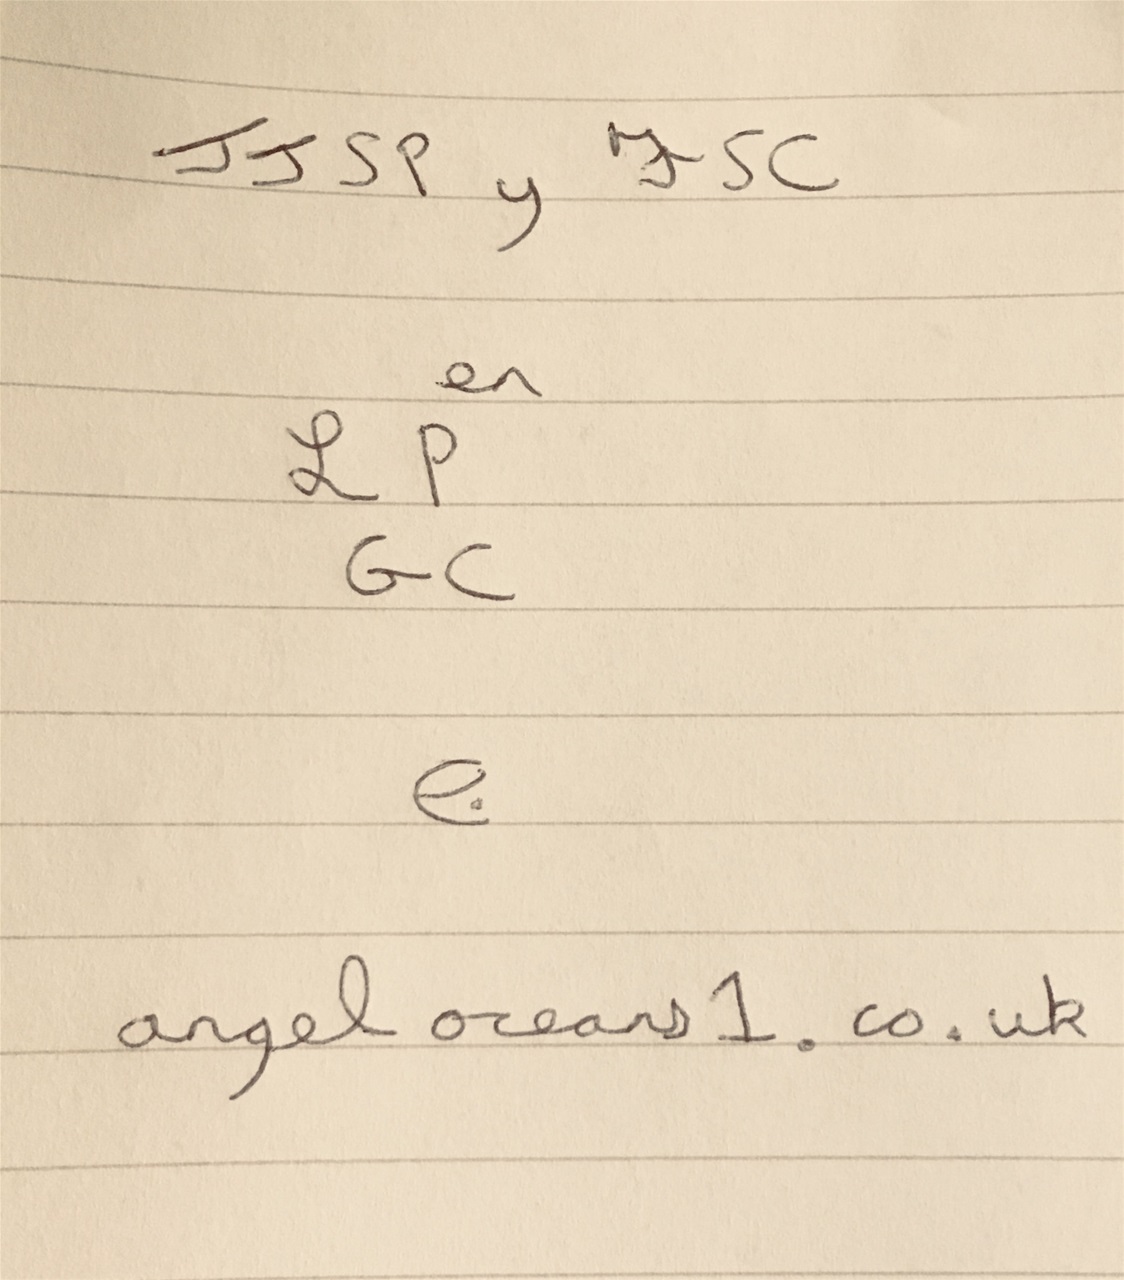 JJSP y MJSC
en
L P
GC
e.
angel oceans1.co.uk